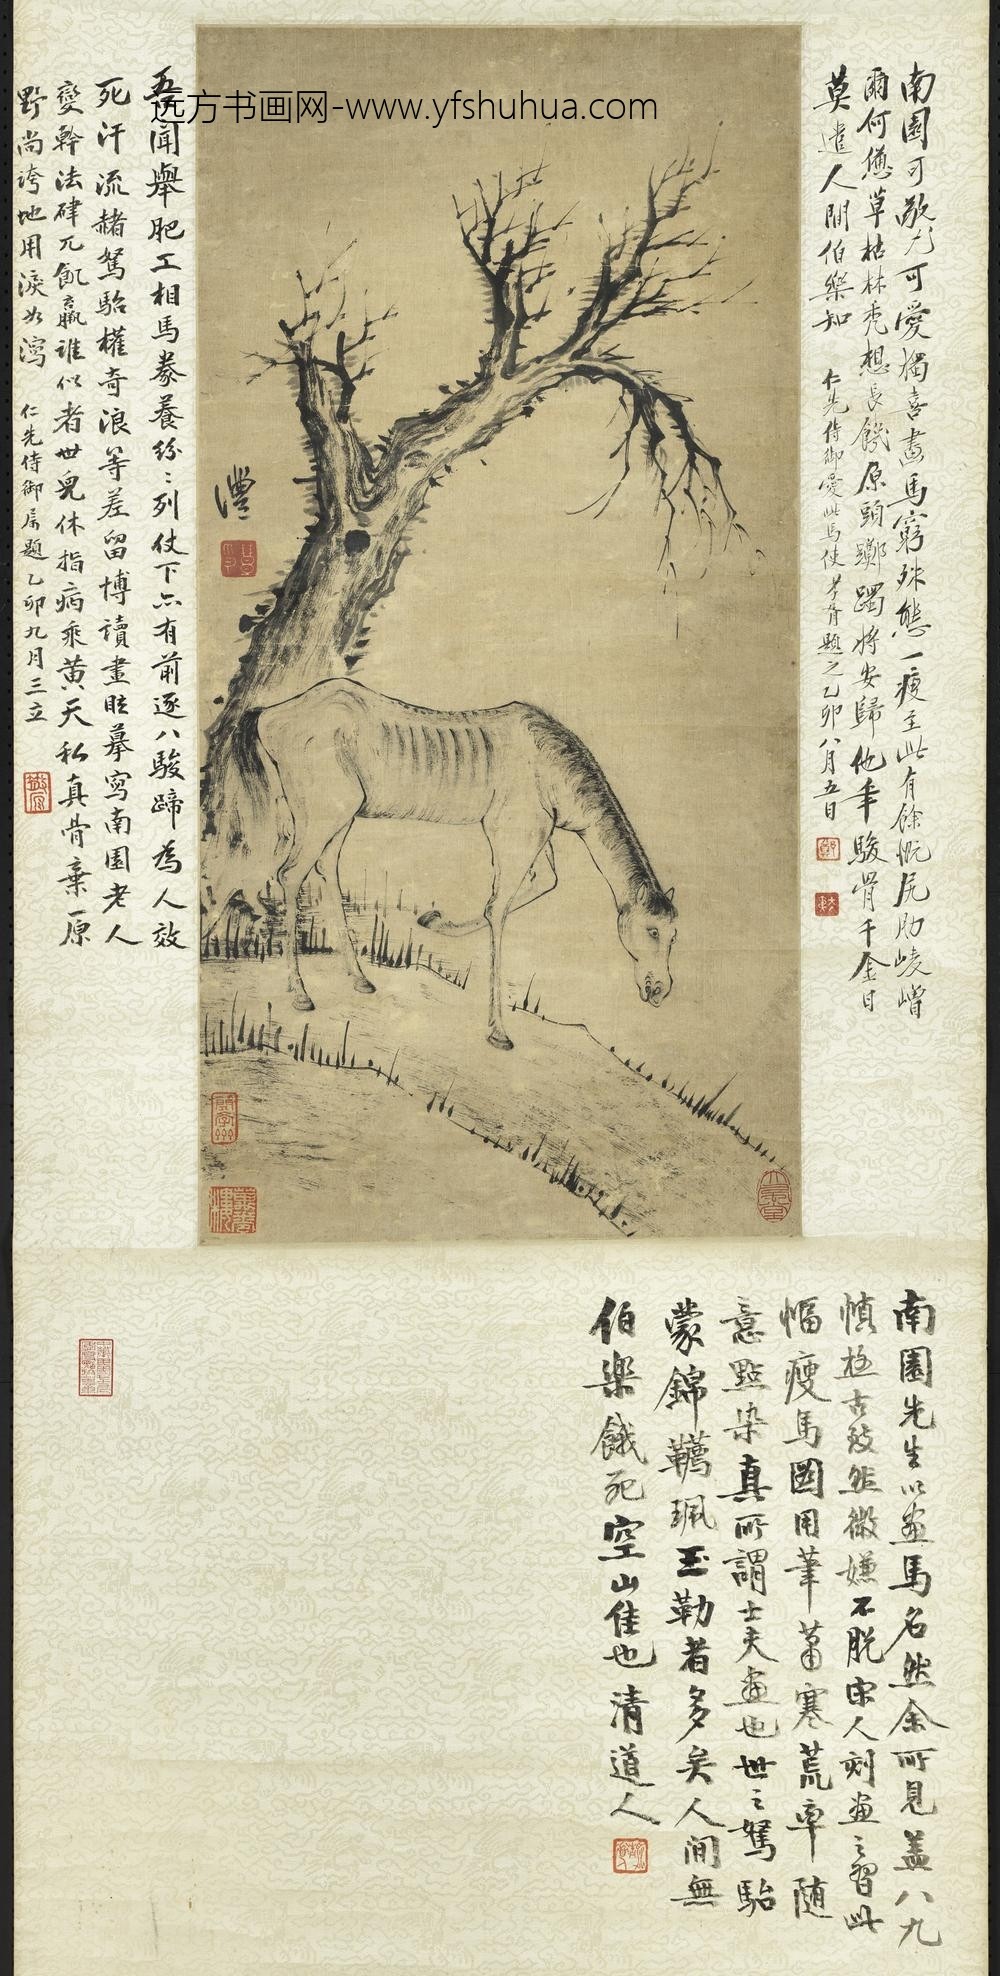 远方书画网-www.yfshuhua.com
南園可敬尤可愛獨喜畫馬窮殊態一瘦至此有餘慨尻肋崚嶒
爾何憊草枯林禿想長饑原頭躑躅將安歸他年駿骨千金日
莫遣人間伯樂知
仁先侍御愛此馬使孝胥題之乙卯八月五日
灃
聞舉肥工相馬豢養紛紛列仗下亦有前逐八駿蹄為人效
死汗流赭駑駘權奇浪等差留博讀畫眩摹寫南園老人
變幹法肆兀飢羸誰似者世兒休指病乘黃天私真骨棄原
野尚誇地用淚如瀉
仁先侍御屬題乙卯九月三立
南園先生以畫馬名然余所見蓋八九
慎極古致然微嫌不脫宋人刻畫之習此
幅瘦馬圖用筆蕭寒荒率隨
意點染真所謂士夫畫也世之駑駘
蒙錦韉珮玉勒者多矣人間無
伯樂餓死空山佳也清道人